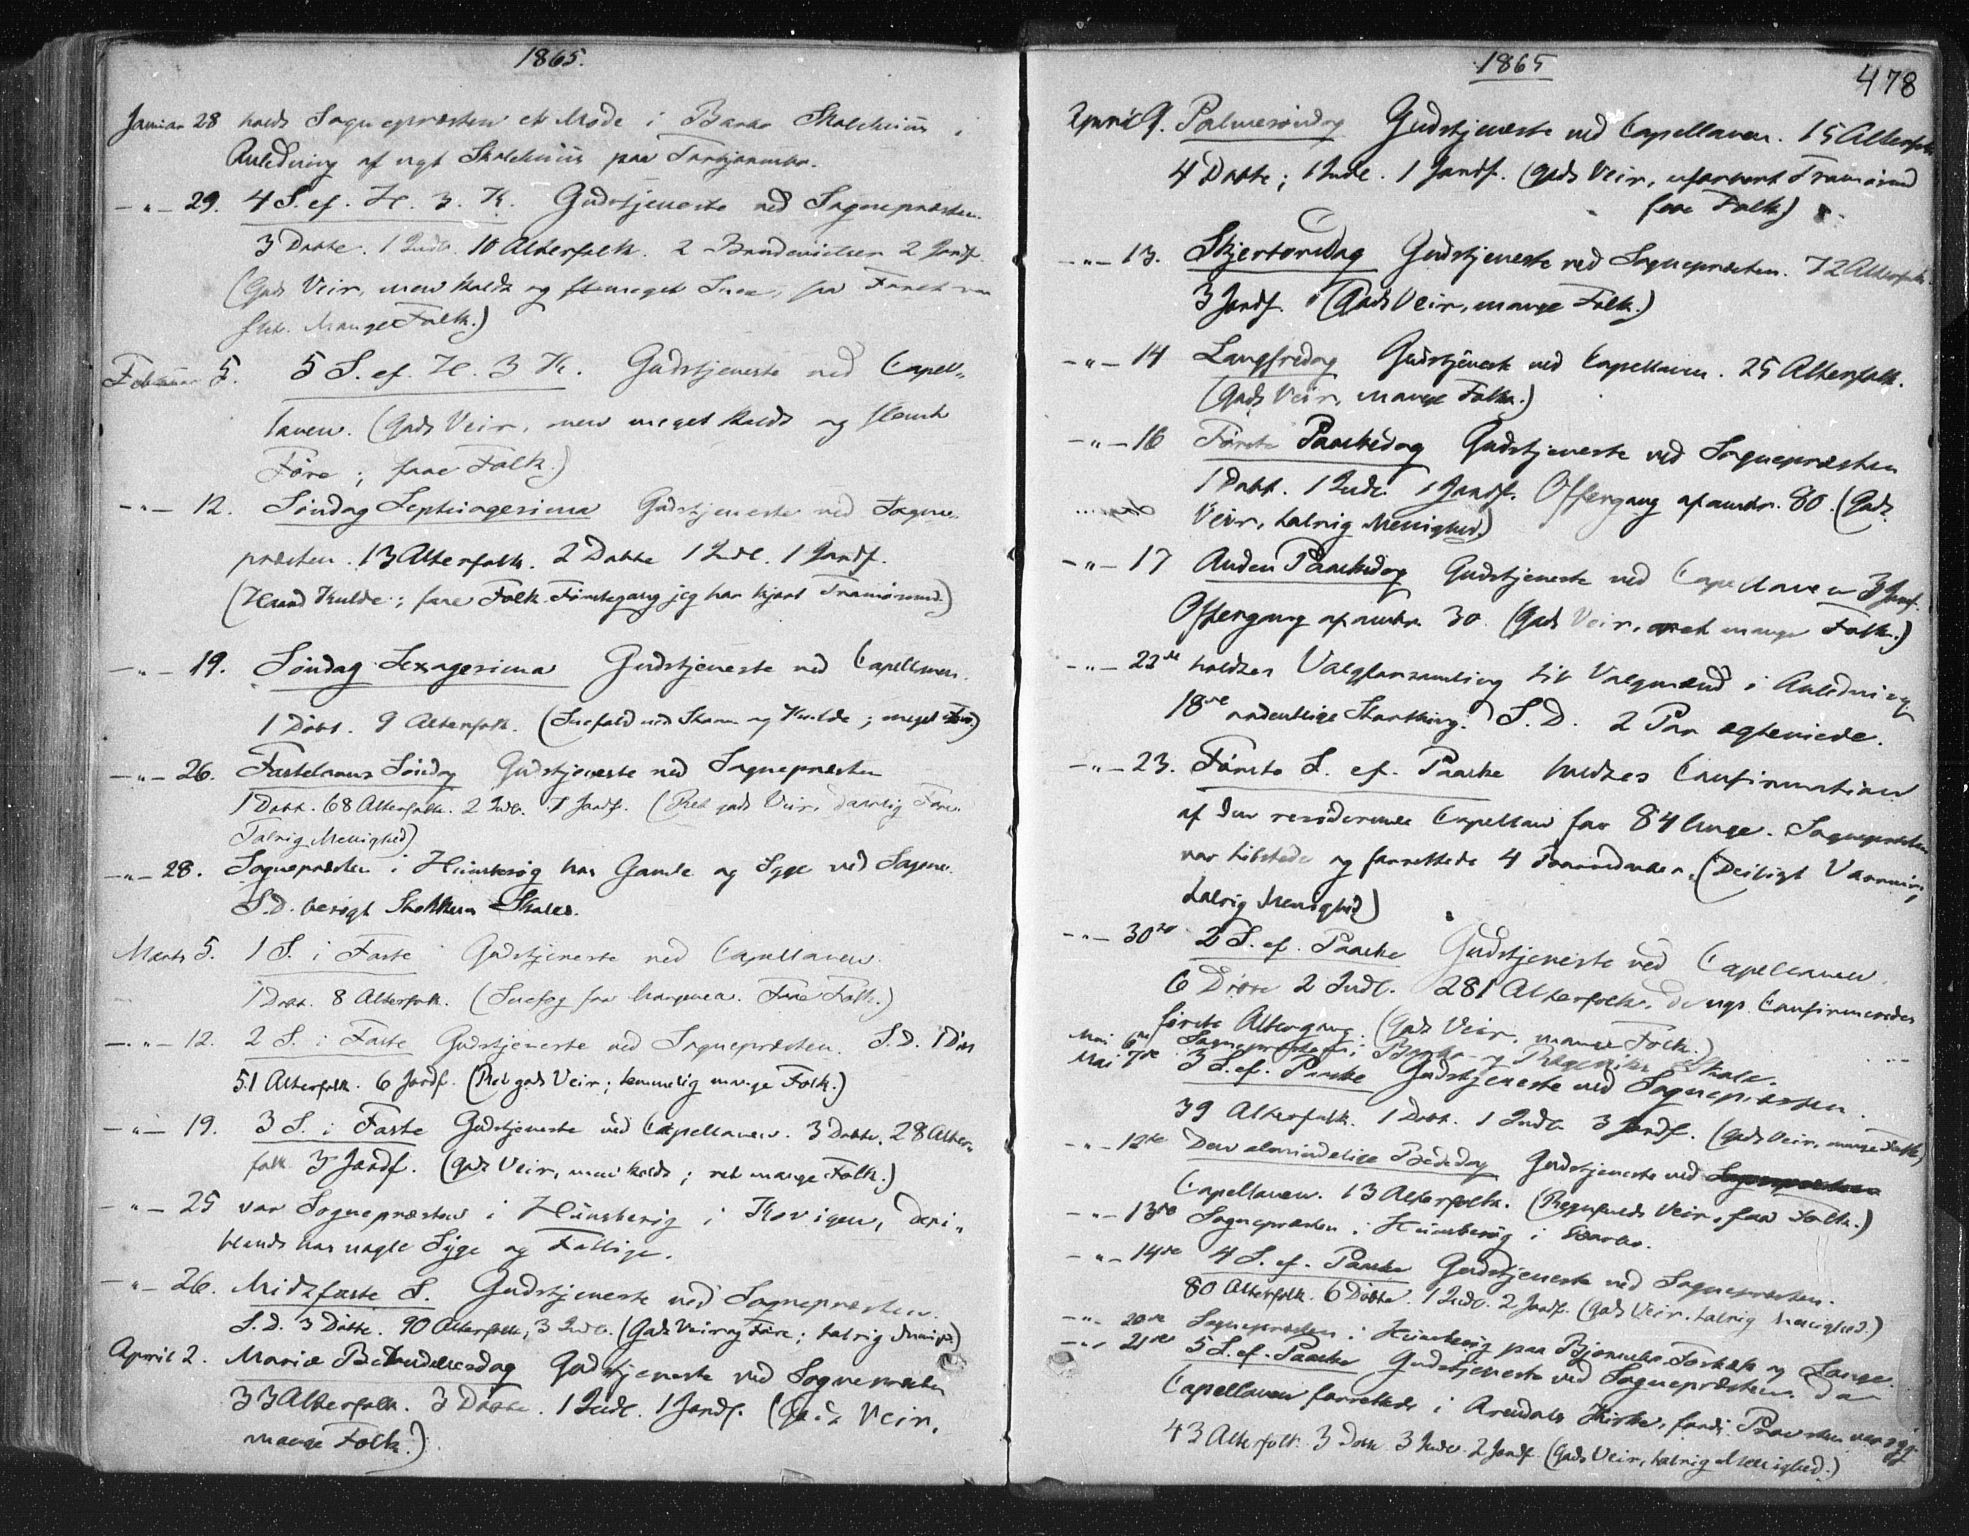 1865.
Januar 28 holdt Sognepræsten et Møde i Barbo Skolehuus i
Anledning af nyt Skolehuus paa
-"- 29. 4 S. ef. H. 3. K. Gudstjeneste ved Sognepræsten.
3 Døbte. 1 Indl. 10 Alterfolk. 2 2 Jordf.
(Godt Veir, men koldt og meget Snee, Føret
Mange Folk.)
Februar 5. 5 S. ef. H. 3 K. Gudstjeneste ved Capel-
lanen. (Godt Veir, men meget koldt og slemt
Føre; faae Folk.)
-"- 12. Søndag Septuagesima Gudstjeneste ved Sogne-
præsten. 13 Alterfolk. 2 Døbte 1 Indl. 1 Jordf.
(Haard Kulde; faae Folk. Førstegang jeg har kjørt Tromøsund.)
-"- 19. Søndag Sexagesima Gudstjeneste ved Capellanen.
1 Døbt. 9 Alterfolk. (Snefald med Storm og Kulde; meget)
-"- 26. Fastelavns Søndag Gudstjeneste ved Sognepræsten
1 Døbt. 68 Alterfolk. 2 Indl. 1 Jordf. (Ret godt Veir, daarlig Føre.
Talrig Menighed)
-"- 28. Sognepræsten i Huusbesøg hos Gamle og Syge ved
S.D. besøgt Skole.
Marts 5. 1 S. i Faste Gudstjeneste ved Capellanen.
1 Døbt. 8 Alterfolk. (Snefog Faae Folk.)
-"- 12. 2 S. i Faste Gudstjeneste ved Sognepræsten. S.D. 1
51 Alterfolk. 6 Jordf. (Ret godt Veir; temmelig mange Folk.)
-"- 19. 3 S. i Faste Gudstjeneste ved Capellanen. 3 Døbte, 28 Alter-
folk 3 Jordf. (Godt Veir, men koldt; ret mange Folk.)
-"- 25 var Sognepræsten i Huusbesøg i Kovigen, deri-
blandt hos nogle Syge og Fattige.
-"- 26. Midfaste S. Gudstjeneste ved Sognepræsten.
S.D. 3 Døbte. 90 Alterfolk, 3 Indl. (Godt Veir og Føre; talrig)
April 2. Mariæ Bebudelsesdag Gudstjeneste ved Sognepræsten
33 Alterfolk. 3 Døbte. 1 Indl. 1 Jordf. (Godt Veir,
mange Folk.)
1865
478
April 9. Palmesøndag Gudstjeneste ved Capellanen. 15 Alterfolk
4 Døbte; 1 Indl. 1 Jordf. (godt Veir, Tromøsund
faae Folk)
-"- 13. Skjertorsdag Gudstjeneste ved Sognepræsten. 72 Alterfolk.
3 Jordf. (Godt Veir, mange Folk.)
-"- 14 Langfredag Gudstjeneste ved Capellanen. 25 Alterfolk.
(Godt Veir, mange Folk.)
-"- 16 Første Paaskedag Gudstjeneste ved Sognepræsten
1 Døbt. 1 Indl. 1 Jordf. Offergang af omtr. 80. (Godt
Veir, talrig Menighed)
-"- 17 Anden Paaskedag Gudstjeneste ved Capellanen 3 Jordf.
Offergang af omtr. 30. (Godt Veir, mange Folk.)
-"- 22de holdtes Valgforsamling til Valgmænd i Anledning
18de ordentlige Storthing. S.D. 2 Par ægteviede.
-"- 23. Første S. ef. Paaske holdtes Confirmation
af den residerende Capellan for 84 Unge. Sognepræsten
var tilstede og forrettede 4 (Deiligt Vaarveir,
talrig Menighed)
-"- 30te 2 S. ef. Paaske Gudstjeneste ved Capellanen.
6 Døbte 2 Indl. 281 Alterfolk, de nye Confirmeredes
første Altergang. (Godt Veir, mange Folk.)
Mai 6te Sognepræsten i Barbo og Skole.
Mai 7de 3 S. ef. Paaske Gudstjeneste ved Sognepræsten.
39 Alterfolk. 1 Døbt. 1 Indl. 3 Jordf. (Godt Veir, mange Folk)
-"- 12te Den almindelige Bededag Gudstjeneste ved
Capellanen. 13 Alterfolk. (Regnfuldt Veir, faae Folk.)
-"- 13de Sognepræsten i Huusbesøg i Barbo.
-"- 14de 4 S. ef. Paaske Gudstjeneste ved Sognepræsten.
80 Alterfolk. 6 Døbte. 1 Indl. 2 Jordf. (Godt Veir, talrig Menighed.)
-"- 20de Sognepræsten i Huusbesøg paa og Longe.
-"- 21de 5 S. ef. Paaske Gudstjeneste ved Sognepræsten, da
Capellanen forrettede i Arendals Kirke, fordi Provsten var syg.
43 Alterfolk. 3 Døbte 3 Indl. 2 Jordf. (Godt Veir, talrig Menighed.)